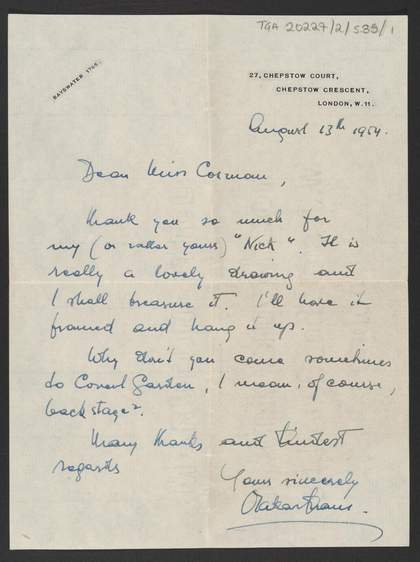 TGA 20227/2/5.85/1
BAYSWATER
27, CHEPSTOW COURT,
CHEPSTOW CRESCENT,
LONDON, W.11.
August 13th 1954.
Dear Miss Cosman,
thank you so much for
my (or rather yours) "Nick". It is
really a lovely drawing and
I shall treasure it. I'll have it
framed and hang it up.
Why don't you come sometimes
to Covent Garden, I mean, of course,
backstage?
Many thanks and kindest
regards
Yours sincerely
Otakar Kraus.